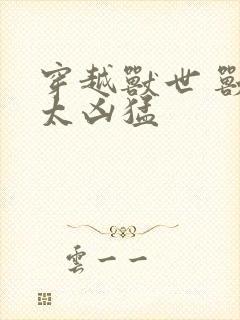 穿越獸世 獸
太凶猛
雲一一